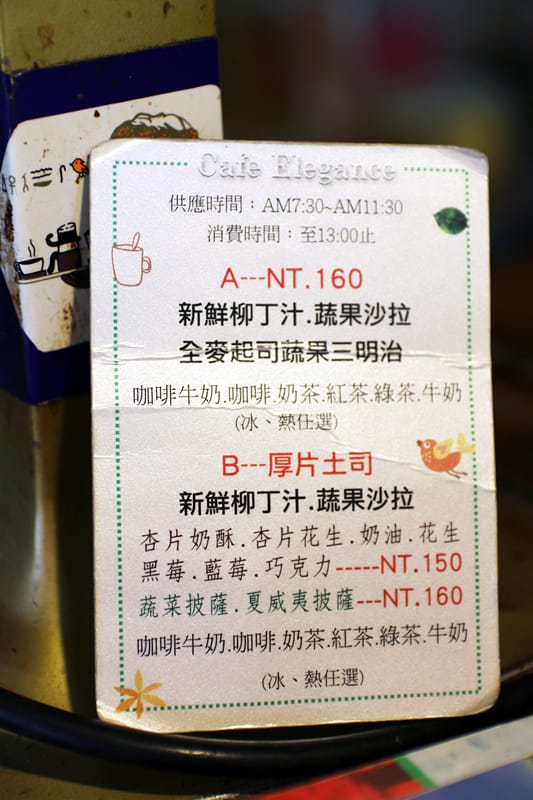 Cafe Elegance
供應時間：AM7:30~AM11:30
消費時間：至13:00止
A---NT.160
新鮮柳丁汁.蔬果沙拉
全麥起司蔬果三明治
咖啡牛奶.咖啡.奶茶.紅茶.綠茶.牛奶
(冰、熱任選)
B---厚片土司
新鮮柳丁汁.蔬果沙拉
杏片奶酥.杏片花生.奶油.花生
黑莓.藍莓.巧克力-----NT.150
蔬菜披薩.夏威夷披薩---NT.160
咖啡牛奶.咖啡.奶茶.紅茶.綠茶.牛奶
(冰、熱任選)